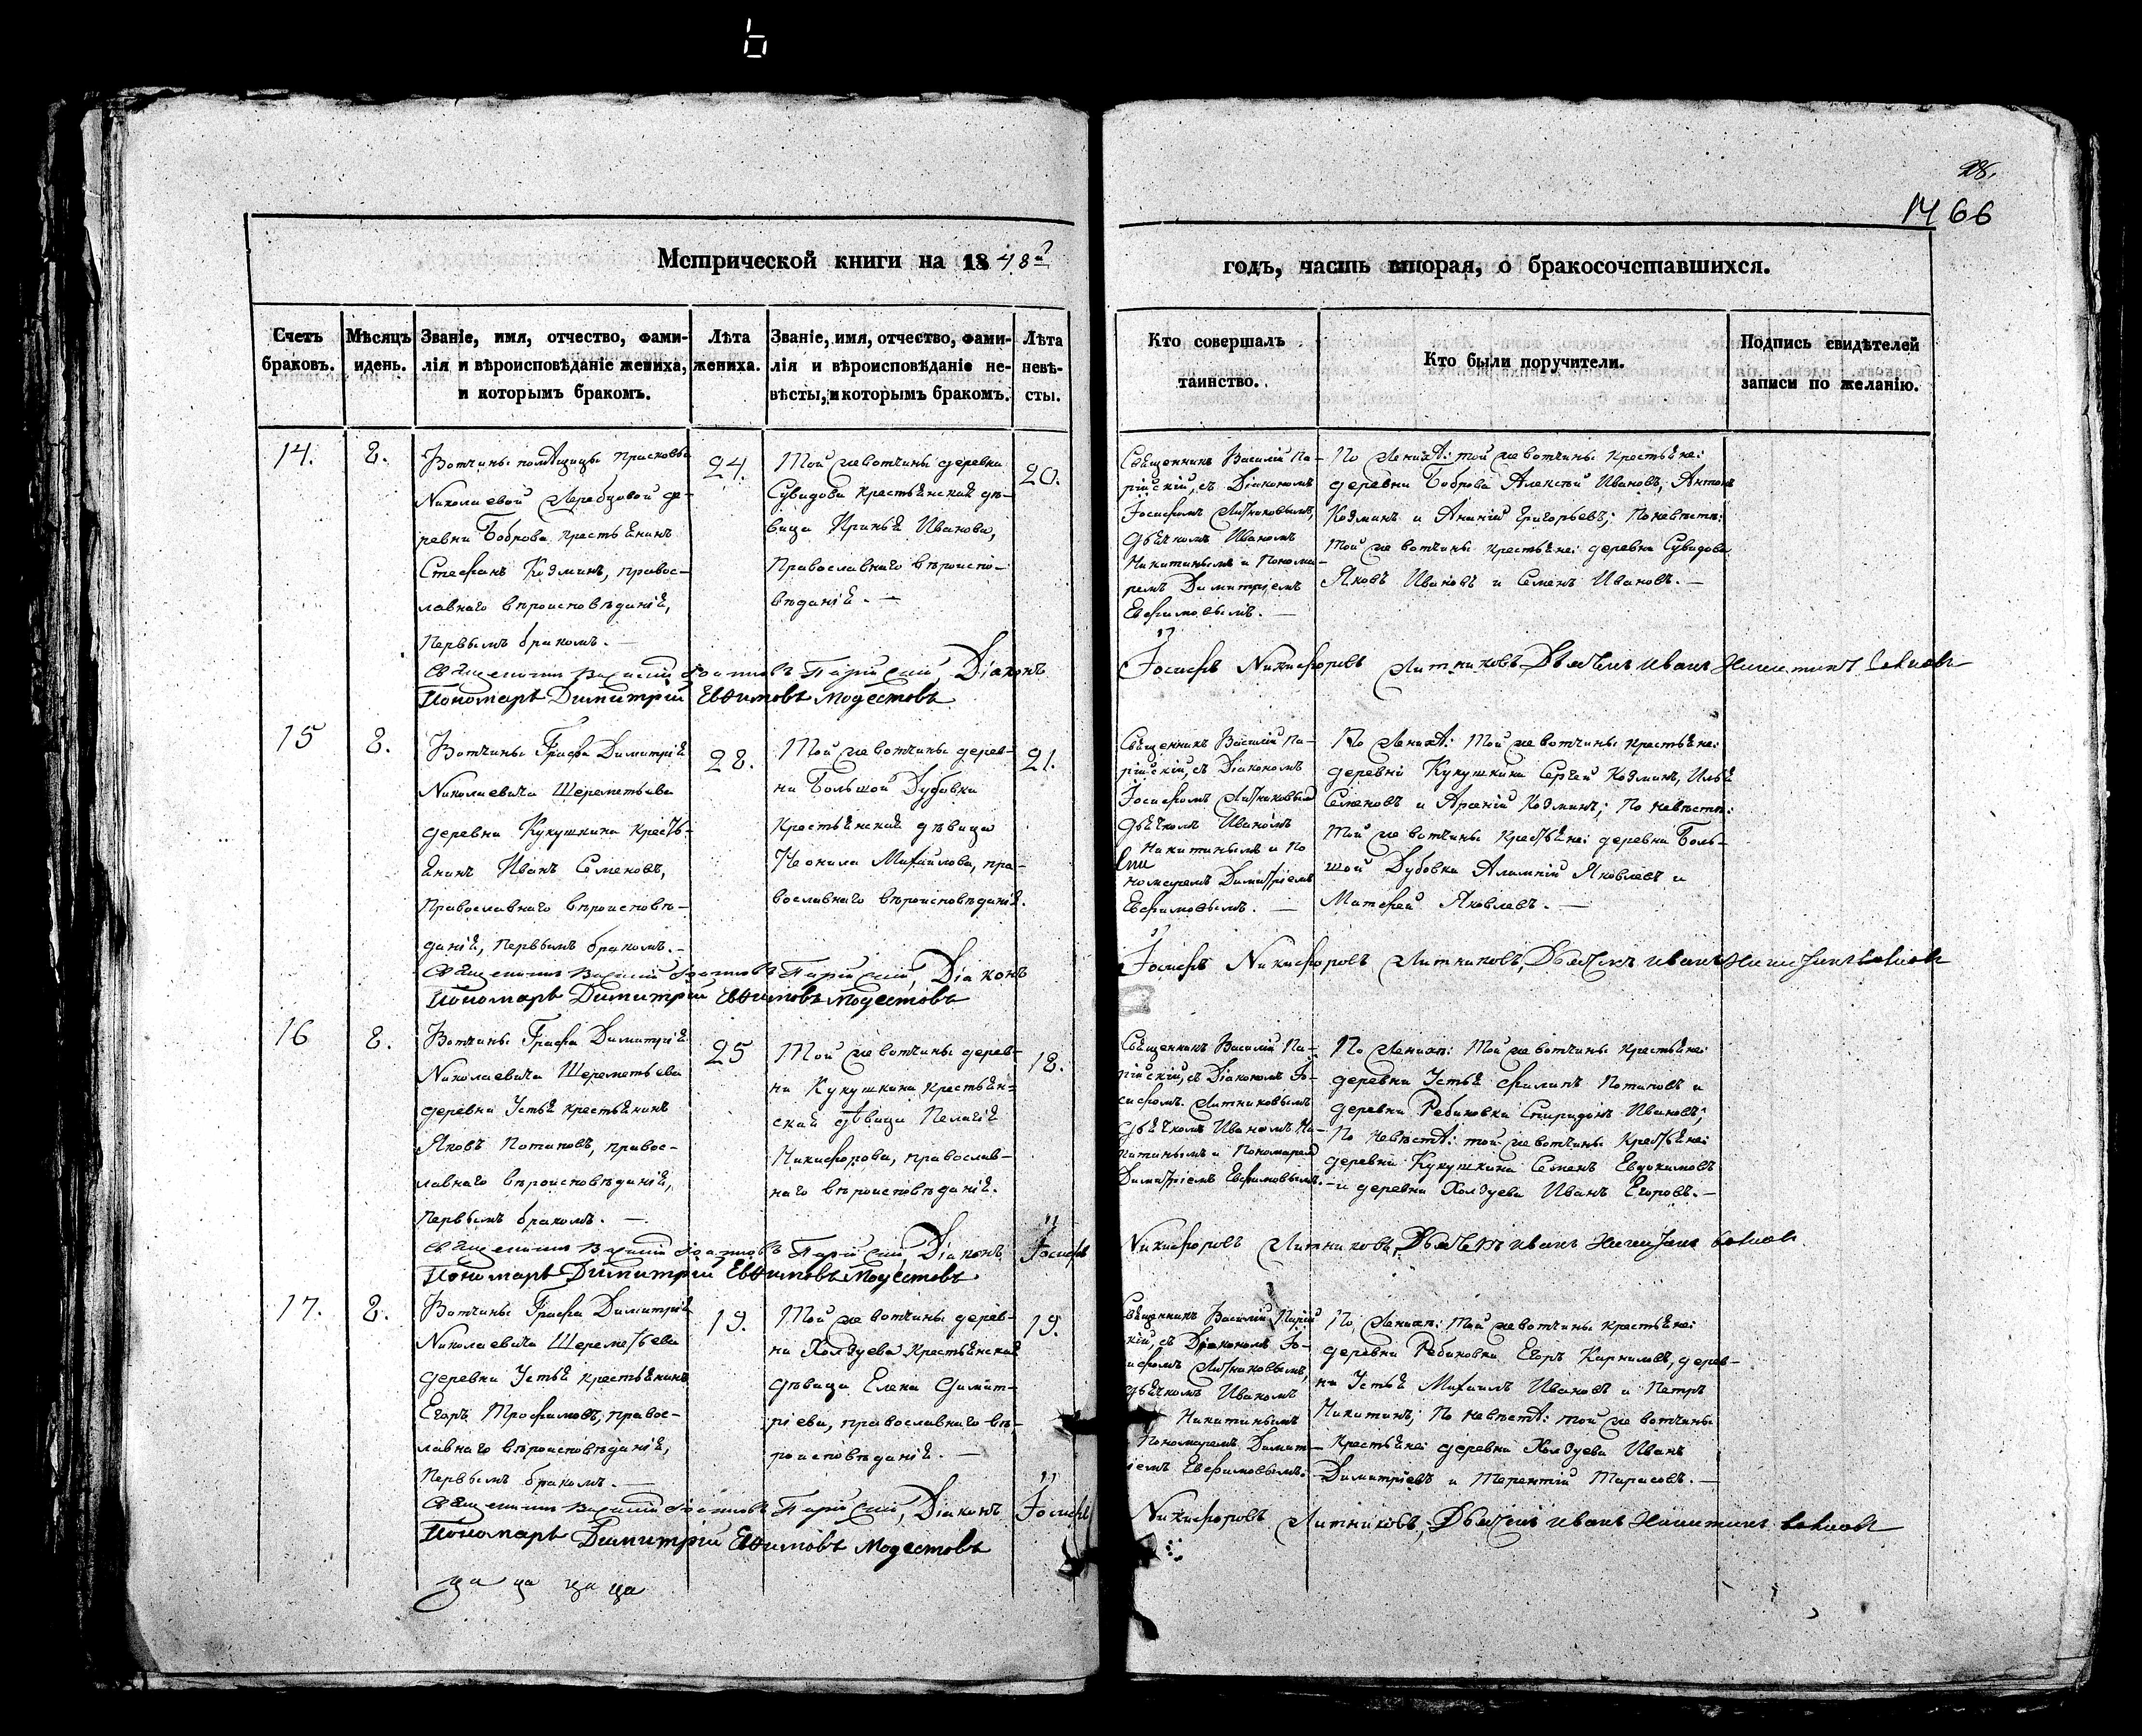 28.
1466
Метрической книги на 1848й
годъ, часть вторая, о бракосочетавшихся.
Счетъ браковъ.
Мѣсяцъ идень.
Званіе, имя, отчество, фами-
лія и вѣроисповѣданіе жениха,
и которымъ бракомъ.
Лѣта
жениха.
Званіе, имя, отчество, фами-
лія и вѣроисповѣданіе не-
вѣсты, и которымъ бракомъ.
Лѣта
невѣ-
сты.
Кто совершалъ
таинство.
Кто были поручители.
Подпись свидѣтелей
записи по желанію.
14.
8.
Вотчины помѣщицы Прасковьи
Николаевой Жеребцовой де-
ревни Боброва крестьянинъ
Стефанъ Козминъ, правос-
лавнаго вѣроисповѣданія,
первымъ бракомъ. —
24.
Той же вотчины деревни
Сувидова крестьянская дѣ-
вица Ирина Иванова,
Православнаго вѣроиспо-
вѣданія. —
20.
Священникъ Василій Па-
рійскій, съ Діакономъ
Іосифомъ Литниковымъ,
дьячкомъ Иваномъ
Никитинымъ и Понома-
ремъ Димитріемъ
Евфимовымъ. —
По женихѣ: той же вотчины крестьяне:
деревни Боброва Алексѣй Ивановъ, Антонъ
Козминъ и Ананій Григорьевъ; По невѣстѣ:
той же вотчины крестьяне: деревни Сувидова
Яковъ Ивановъ и Семенъ Ивановъ. —
Священникъ Василій Парійскій, Діаконъ Іосифъ Никифоровъ Литниковъ, Дьячекъ Иванъ Никитинъ
Пономарь Димитрій Евѳимовъ Модестовъ
15
8.
Вотчины Графа Димитрія
Николаевича Шереметьева
деревни Кукушкина кресть-
янинъ Иванъ Семеновъ,
православнаго вѣроисповѣ-
данія, первымъ бракомъ. —
28.
Той же вотчины дерев-
ни Большой Дубовки
крестьянская дѣвица
Неонила Михаилова, пра-
вославнаго вѣроисповѣданія.
21.
Священникъ Василій Па-
рійскій, съ Діакономъ
Іосифомъ Литниковымъ
дьячкомъ Иваномъ
Никитинымъ и По
номаремъ Димитріемъ
Евфимовымъ. —
По женихѣ: Той же вотчины крестьяне:
деревни Кукушкина Сергей Козминъ, Илья
Семеновъ и Арсеній Козминъ; По невѣстѣ:
той же вотчины крестьяне: деревни Боль-
шой Дубовки Алимпій Яковлевъ и
Матфей Яковлевъ. —
Священникъ Василій Парійскій, Діаконъ Іосифъ Никифоровъ Литниковъ, Дьячекъ Иванъ Никитинъ
Пономарь Димитрій Евѳимовъ Модестовъ
16
8.
Вотчины Графа Димитрія
Николаевича Шереметьева
деревни Устья крестьянинъ
Яковъ Потаповъ, правос-
лавнаго вѣроисповѣданія,
первымъ бракомъ. —
25
Той же вотчины дерев-
ни Кукушкина крестьян-
ская дѣвица Пелагія
Никифорова, православ-
наго вѣроисповѣданія.
18.
Священникъ Василій Па-
рійскій, съ Діакономъ Іо-
сифомъ Литниковымъ
дьячкомъ Иваномъ Ни-
китинымъ и Пономаремъ
Димитріемъ Евфимовымъ.
По женихѣ: Той же вотчины крестьяне:
деревни Устья Филипъ Потаповъ и
деревни Рябиновки Спиридонъ Ивановъ;
По невѣстѣ: той же вотчины крестьяне:
деревни Кукушкина Семенъ Евдокимовъ
и деревни Холдуева Иванъ Егоровъ. —
Священникъ Василій Парійскій, Діаконъ Іосифъ Никифоровъ Литниковъ, Дьячекъ Иванъ Никитинъ
Пономарь Димитрій Евѳимовъ Модестовъ
17.
8.
Вотчины Графа Димитрія
Николаевича Шереметьева
деревни Устья крестьянинъ
Егоръ Трофимовъ, правос-
лавнаго вѣроисповѣданія,
первымъ бракомъ. —
19.
Той же вотчины дерев-
ни Холдуева крестьянская
дѣвица Елена Димит-
ріева, православнаго вѣ-
роисповѣданія. —
19.
Священникъ Василій Парій
скій, съ Діакономъ Іо-
сифомъ Литниковымъ,
дьячкомъ Иваномъ
Никитинымъ
Пономаремъ Димит-
ріемъ Евфимовымъ.
По женихѣ: Той же вотчины крестьяне:
деревни Рябиновки Егоръ Карниловъ, дерев-
ни Устья Михаилъ Ивановъ и Петръ
Никитинъ; По невѣстѣ: той же вотчины
крестьяне: деревни Холдуева Иванъ
Димитріевъ и Терентій Тарасовъ. —
Священникъ Василій Парійскій, Діаконъ Іосифъ Никифоровъ Литниковъ, Дьячекъ Иванъ Никитинъ
Пономарь Димитрій Евѳимовъ Модестовъ
ца ца ца ца